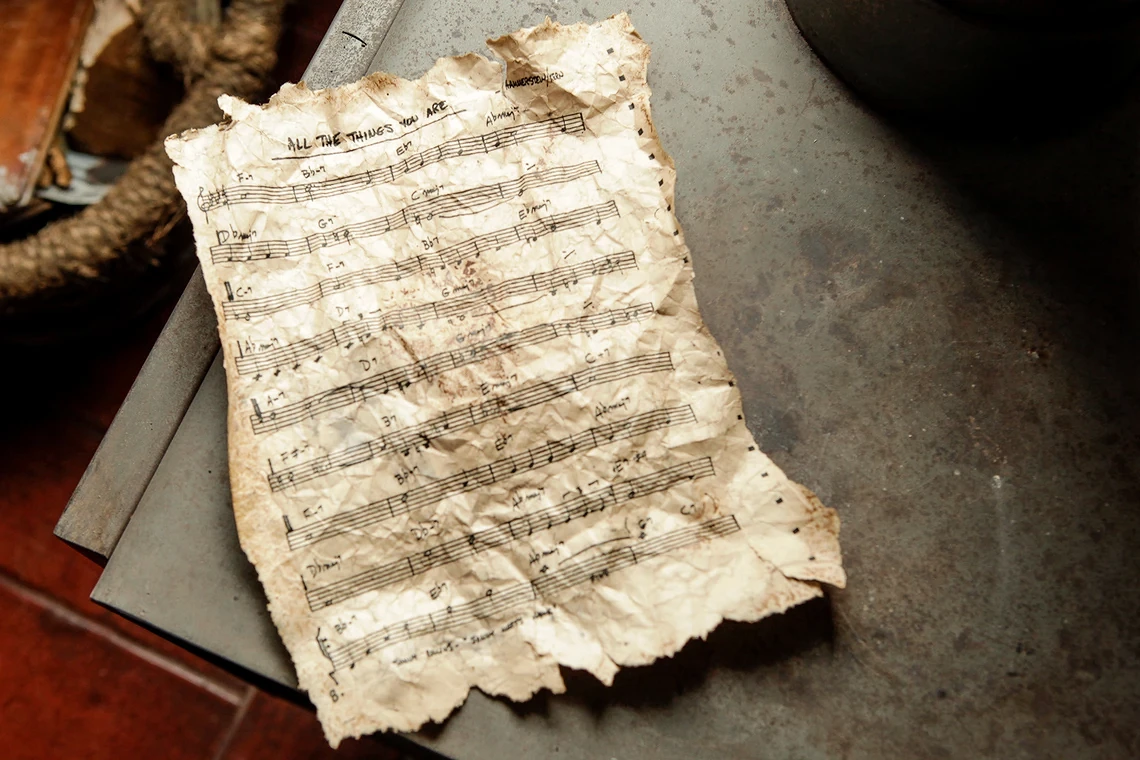 ALL THE THINGS YOU ARE
HAMMERSTEIN/KERN
F-7 Bb-7 Eb7 Abmaj7
Dbmaj7 G7 Cmaj7
C-7 F-7 Bb7 Ebmaj7
Abmaj7 D7 Gmaj7
A-7 D7 Gmaj7
F#-7 B7 Emaj7 C+7
F-7 Bb-7 Eb7 Abmaj7
Dbmaj7 Db-7 Abmaj7
Bb-7 Eb7 Abmaj7 (G7 C7)
FINE
B.